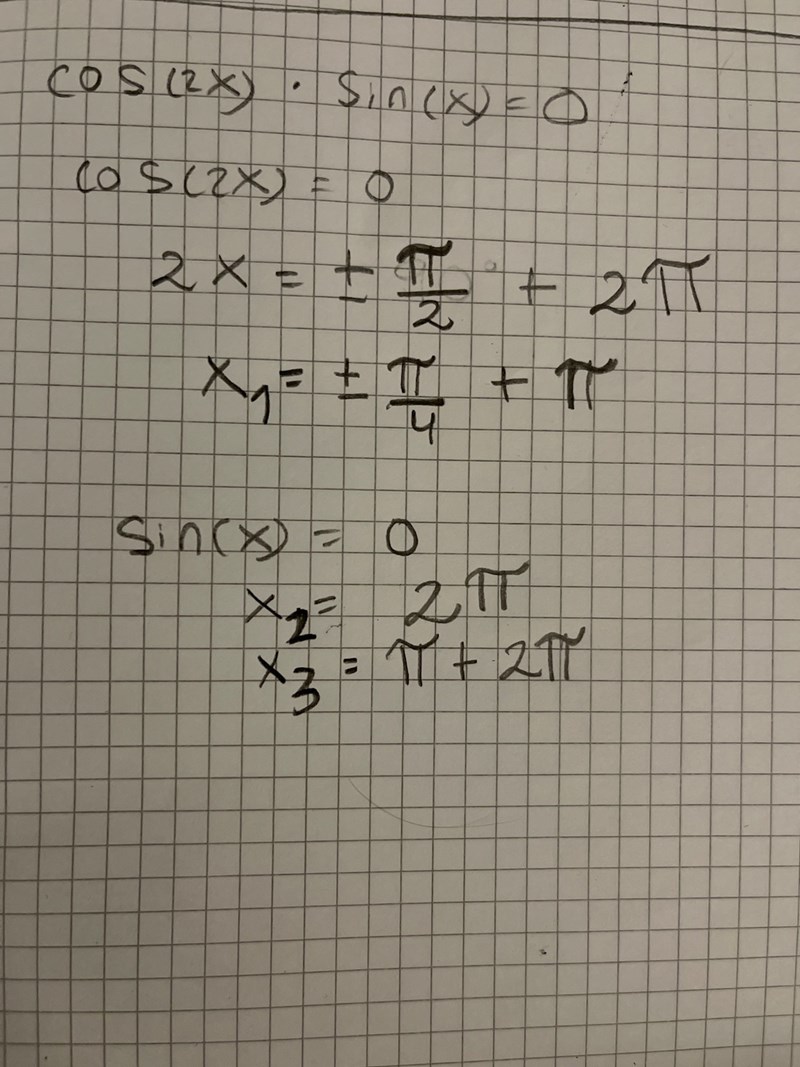 cos(2x) · sin(x) = 0
cos(2x) = 0
2x = ± π/2 + 2π
x₁ = ± π/4 + π
sin(x) = 0
x₂ = 2π
x₃ = π + 2π